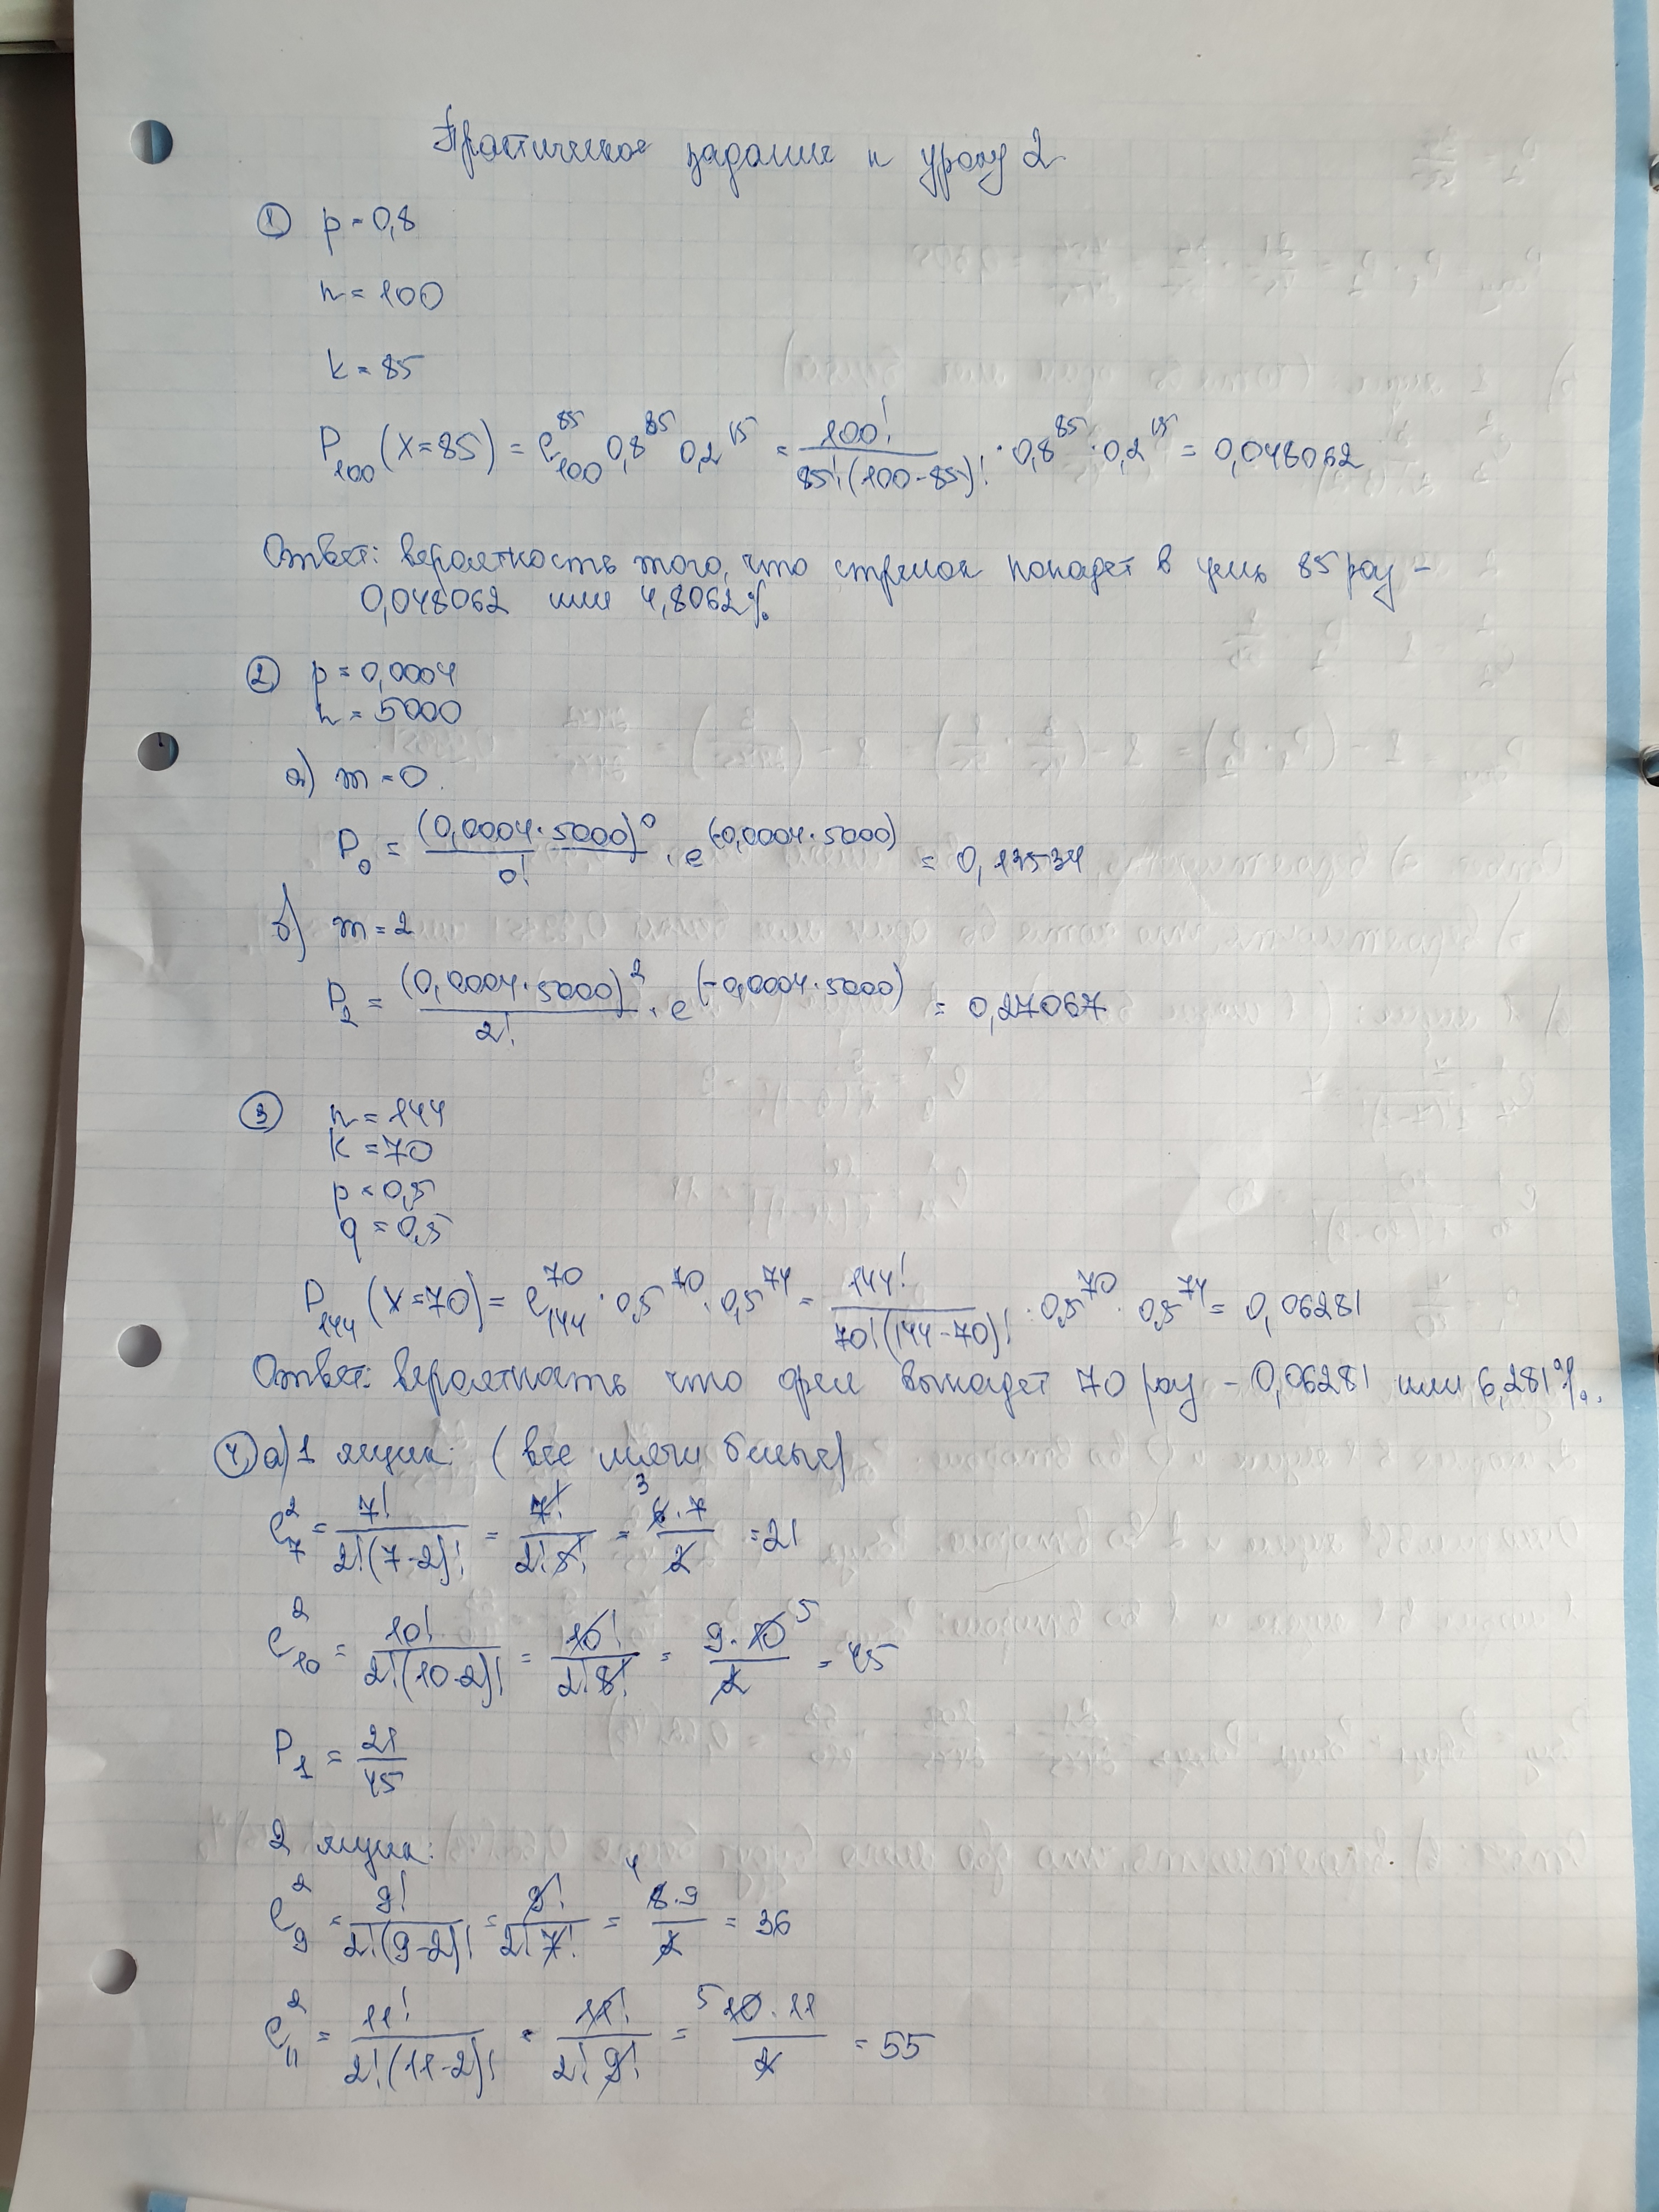 Практическое задание к уроку 2
① p = 0,8
n = 100
k = 85
P₁₀₀(X=85) = C₁₀₀⁸⁵ 0,8⁸⁵ 0,2¹⁵ = 100! / 85!(100-85)! · 0,8⁸⁵ · 0,2¹⁵ = 0,048062
Ответ: вероятность того, что стрелок попадет в цель 85 раз -
0,048062 или 4,8062%.
② p = 0,0004
n = 5000
а) m = 0.
P₀ = (0,0004·5000)⁰ / 0! · e^(-0,0004·5000) = 0,13534
б) m = 2
P₂ = (0,0004·5000)² / 2! · e^(-0,0004·5000) = 0,27067
③ n = 144
k = 70
p = 0,5
q = 0,5
P₁₄₄(X=70) = C₁₄₄⁷⁰ · 0,5⁷⁰ · 0,5⁷⁴ = 144! / 70!(144-70)! · 0,5⁷⁰ · 0,5⁷⁴ = 0,06281
Ответ: вероятность что орел выпадет 70 раз - 0,06281 или 6,281%.
④ а) 1 ящик: (все мячи белые)
C₇² = 7! / 2!(7-2)! = 7! / 2!5! = 3 6·7 / 2 = 21
C₁₀² = 10! / 2!(10-2)! = 10! / 2!8! = 9·10 5 / 2 = 45
P₁ = 21 / 45
2 ящик:
C₉² = 9! / 2!(9-2)! = 9! / 2!7! = 4 8·9 / 2 = 36
C₁₁² = 11! / 2!(11-2)! = 11! / 2!9! = 5 10·11 / 2 = 55